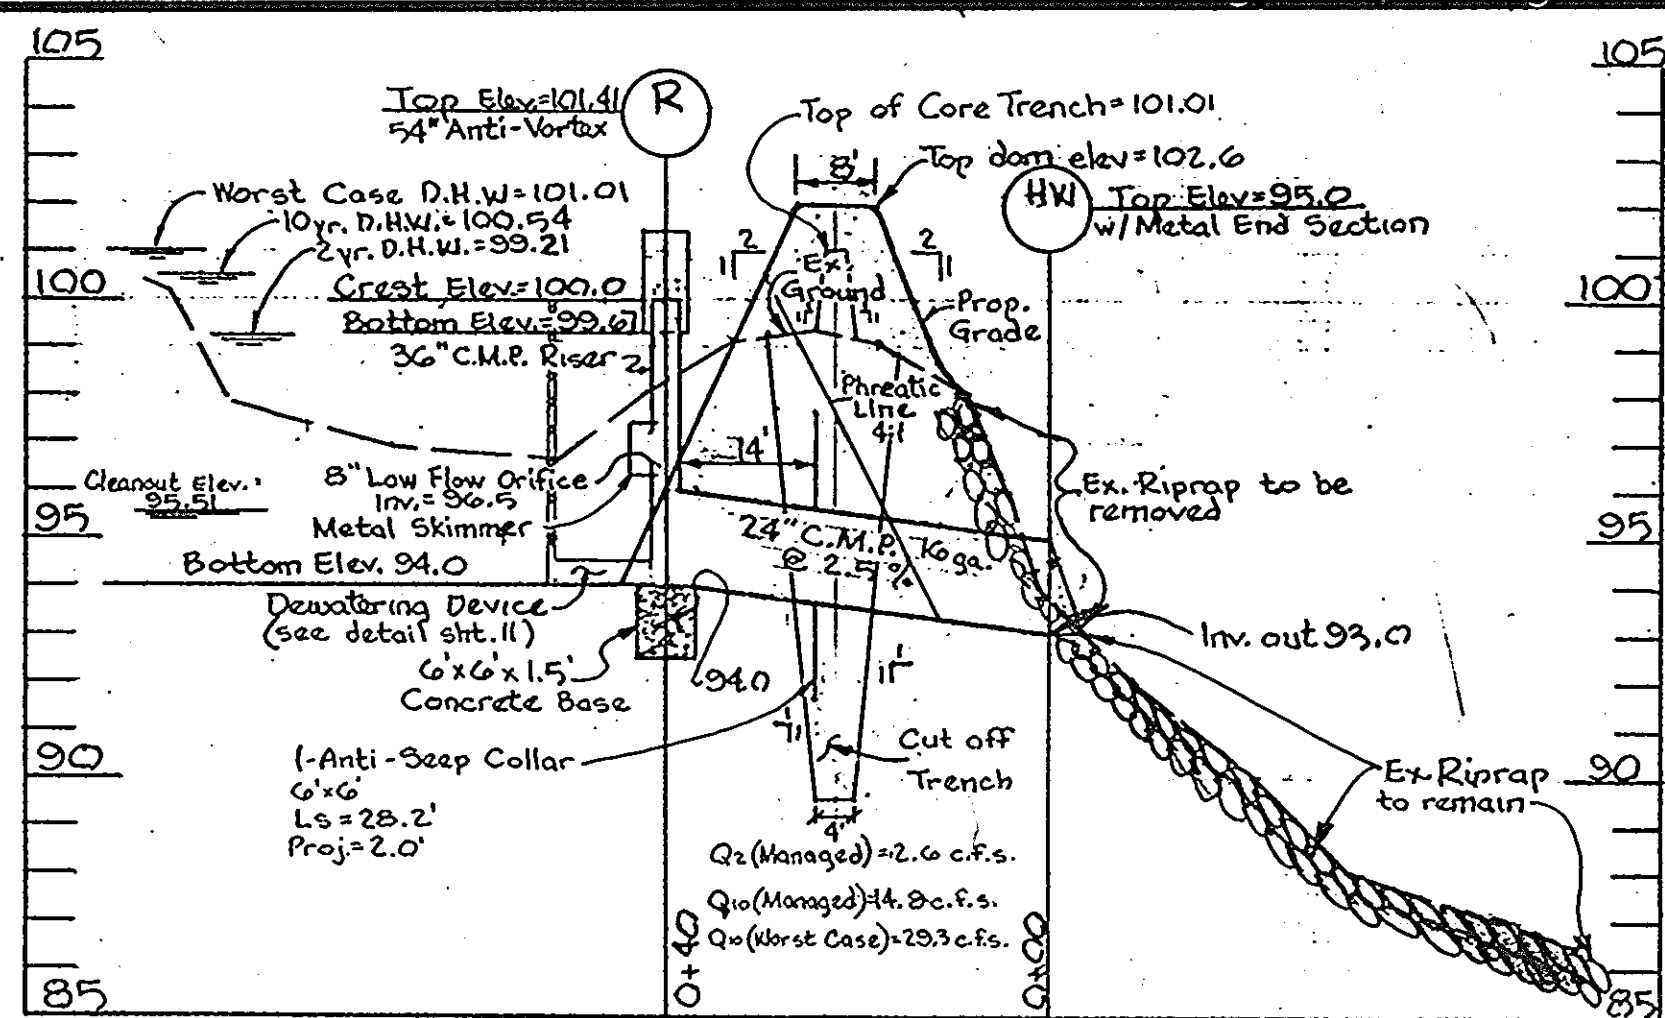 105
105
Top Elev.=101.41
54" Anti-Vortex
R
Top of Core Trench=101.01
Top dam elev=102.6
8'
HW
Top Elev=95.0
w/Metal End Section
Worst Case D.H.W=101.01
10yr. D.H.W.=100.54
2yr. D.H.W.=99.21
2
1
2
1
100
100
Crest Elev.=100.0
Bottom Elev.=99.67
36" C.M.P. Riser
Ex.
Ground
1
1
Prop.
Grade
Phreatic
Line
4:1
4'
Cleanout Elev.=
95.51
8" Low Flow Orifice
Inv.=96.5
Metal Skimmer
Ex. Riprap to be
removed
95
95
24" C.M.P. 16 ga.
@ 2.5%
Bottom Elev. 94.0
Dewatering Device
(see detail sht. 11)
6'x6'x1.5'
Concrete Base
94.0
Inv. out 93.0
1
1
1
1
1-Anti-Seep Collar
6'x6'
Ls=28.2'
Proj.=2.0'
Cut off
Trench
90
90
Ex Riprap
to remain
4'
Q2(Managed)=2.6 c.f.s.
Q10(Managed)=14.8 c.f.s.
Q10(Worst Case)=29.3 c.f.s.
0+40
0+00
85
85